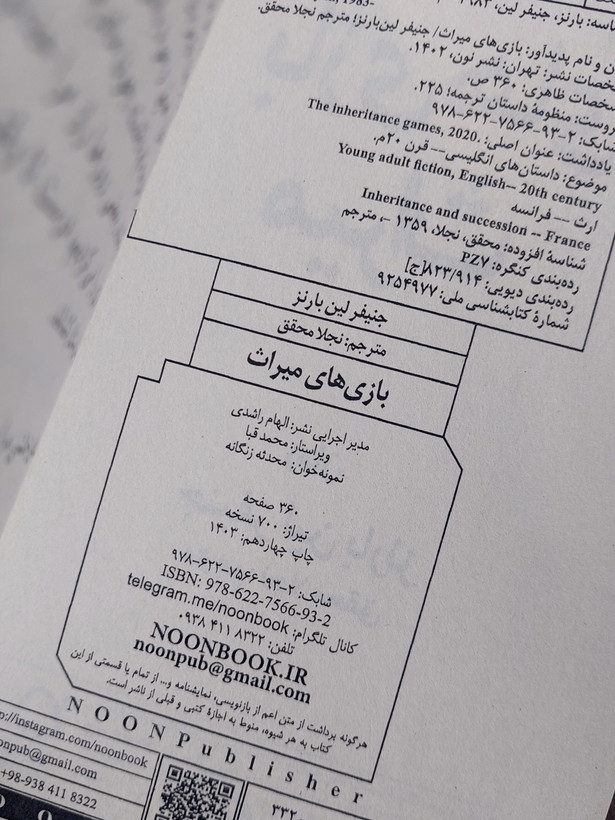 اسه: بارنز، جنیفر لین، ۱۹۸۳
, 1983-
ن و نام پدیدآور: بازی‌های میراث/ جنیفر لین‌بارنز؛ مترجم نجلا محقق.
خصات نشر: تهران: نشر نون، ۱۴۰۲.
خصات ظاهری: ۳۶۰ ص.
روست: منظومهٔ داستان ترجمه؛ ۲۲۵.
شابک: ۲-۹۳-۷۵۶۶-۶۲۲-۹۷۸
یادداشت: عنوان اصلی: The inheritance games, 2020.
موضوع: داستان‌های انگلیسی-- قرن ۲۰م.
Young adult fiction, English-- 20th century
ارث -- فرانسه
Inheritance and succession -- France
شناسهٔ افزوده: محقق، نجلا، ۱۳۵۹ -، مترجم
رده‌بندی کنگره: PZ7
رده‌بندی دیویی: ۸۲۳/۹۱۴[ج]
شمارهٔ کتابشناسی ملی: ۹۲۵۴۹۷۷
جنیفر لین بارنز
مترجم: نجلا محقق
بازی‌های میراث
مدیر اجرایی نشر: الهام راشدی
ویراستار: محمد قبا
نمونه‌خوان: محدثه زنگانه
۳۶۰ صفحه
تیراژ: ۷۰۰ نسخه
چاپ چهاردهم: ۱۴۰۳
شابک: ۲-۹۳-۷۵۶۶-۶۲۲-۹۷۸
ISBN: 978-622-7566-93-2
کانال تلگرام: telegram.me/noonbook
تلفن: ۸۳۲۲ ۴۱۱ ۰۹۳۸
NOONBOOK.IR
noonpub@gmail.com
هرگونه برداشت از متن اعم از بازنویسی، نمایشنامه و... از تمام یا قسمتی از این
کتاب به هر شیوه، منوط به اجازهٔ کتبی و قبلی از ناشر است.
NOONPublisher
p://instagram.com/noonbook
onpub@gmail.com
+98-938 411 8322
۳۳۲